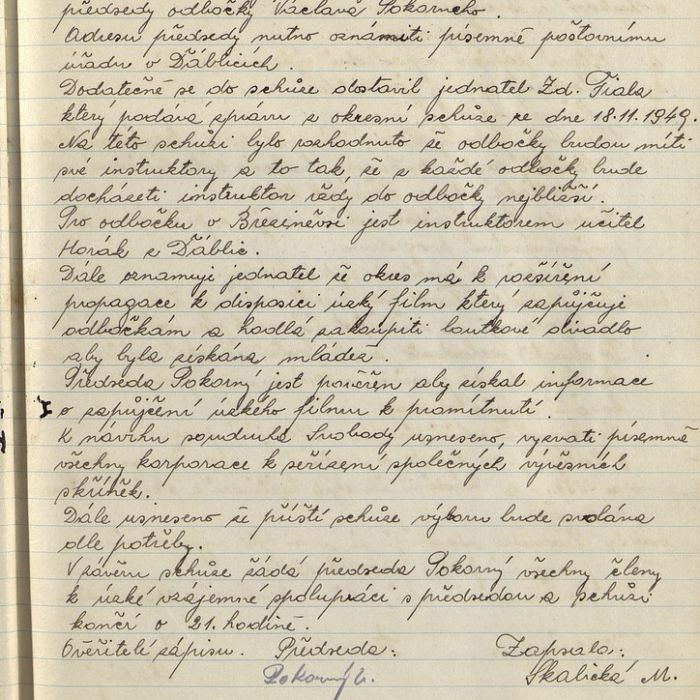 předsedy odbočky Václava Pokorného.
Adresu předsedy nutno oznámiti písemně poštovnímu
úřadu v Ďáblicích.
Dodatečně se do schůze dostavil jednatel Zd. Fiala
který podává zprávu z okresní schůze ze dne 18.11.1949.
Na této schůzi bylo rozhodnuto že odbočky budou míti
své instruktory a to tak, že z každé odbočky bude
docházeti instruktor vždy do odbočky nejbližší.
Pro odbočku v Březiněvsi jest instruktorem učitel
Horák z Ďáblic.
Dále oznamuje jednatel že okres má k rozšíření
propagace k disposici úzký film který zapůjčuje
odbočkám a hodlá zakoupiti loutkové divadlo
aby byla získána mládež.
Předseda Pokorný jest pověřen aby získal informace
o zapůjčení úzkého filmu k promítnutí.
K návrhu soudruha Svobody usneseno, vyzvati písemně
všechny korporace k seřízení společných vývěsních
skříněk.
Dále usneseno že příští schůze výboru bude svolána
dle potřeby.
V závěru schůze žádá předseda Pokorný všechny členy
k úzké vzajemné spolupráci s předsedou a schůzi
končí o 21. hodině.
Ověřitelé zápisu. Předseda: Zapsala:
Pokorný V. Skalická M.